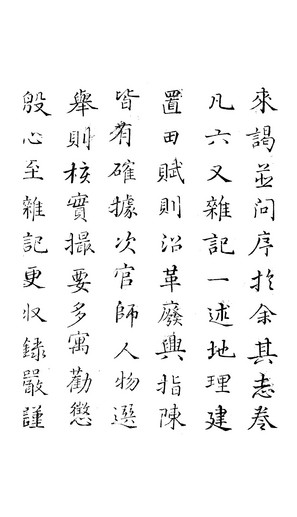 來謁並問序於余其志卷
凡六又雜記一述地理建
置田賦則沿革廢興指陳
皆有確據次官師人物選
舉則核實撮要多寓勸懲
殷心至雜記更收錄嚴謹